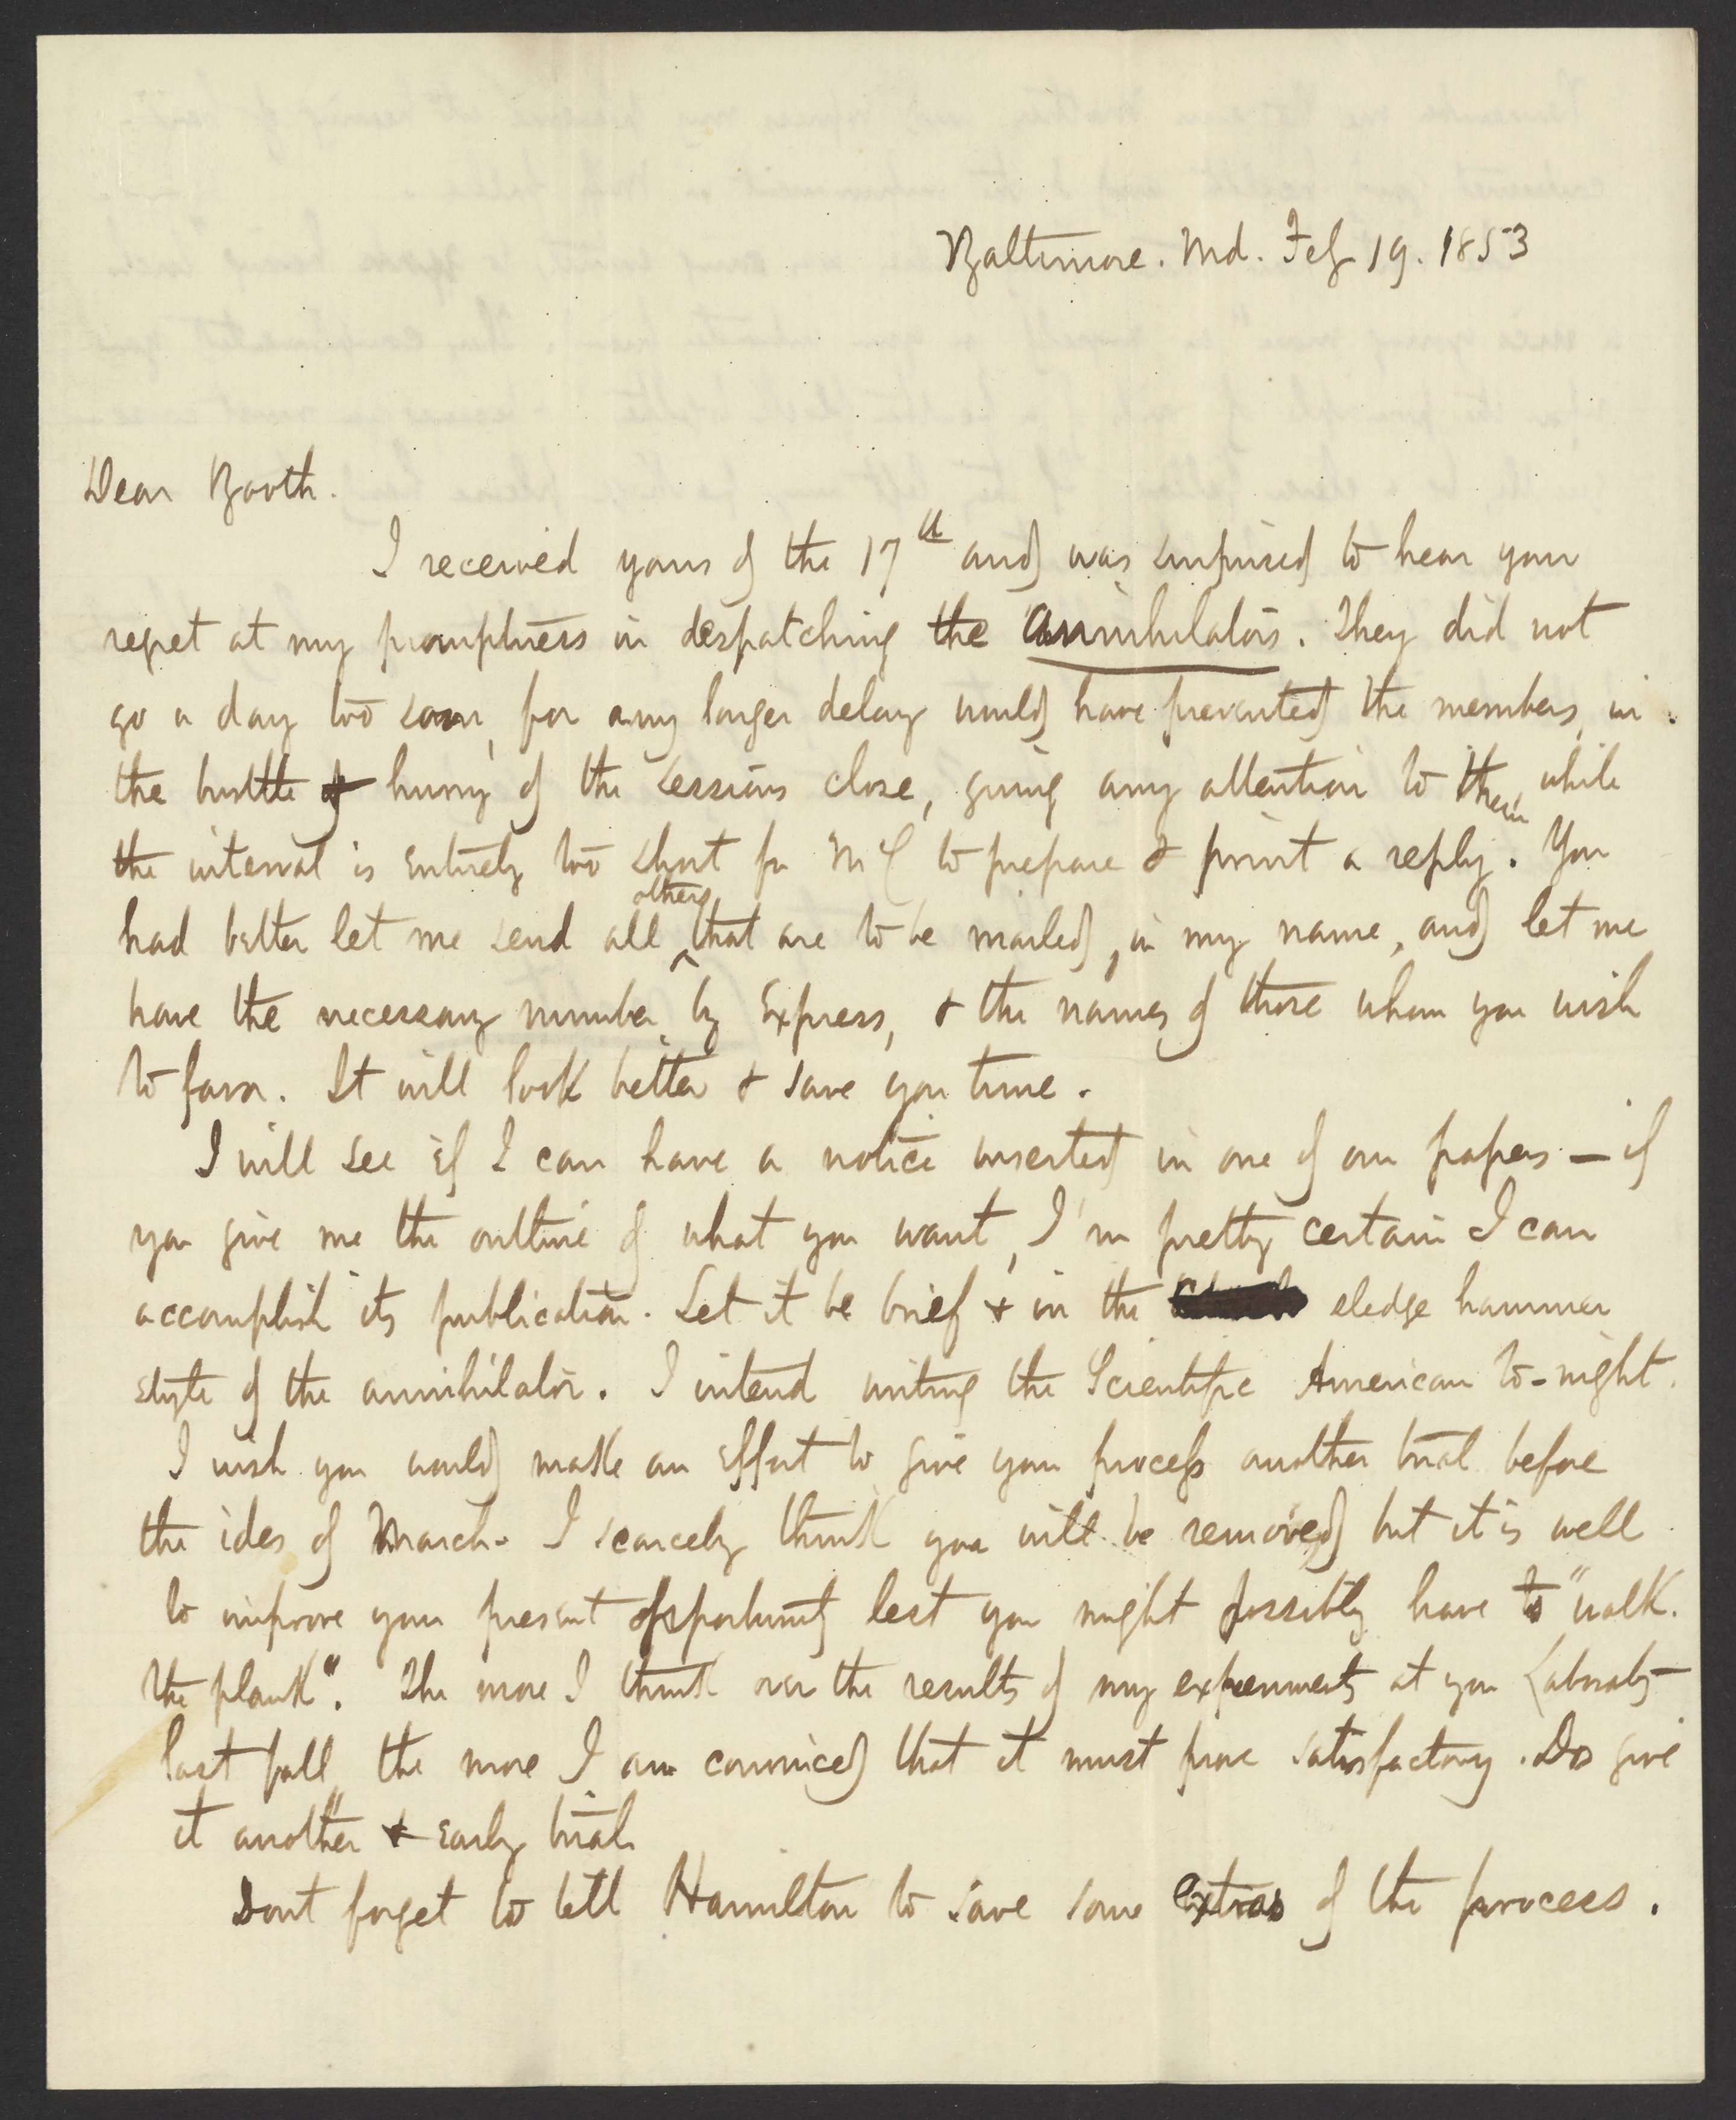 Baltimore. Md. Feb 19. 1853
Dear Booth.
I received yours of the 17th and was surprised to hear your
regret at my promptness in despatching the annihilators. They did not
go a day too soon, for any longer delay would have prevented the members, in
the bustle & hurry of the sessions close, giving any attention to them, while
the interval is entirely too short for McC to prepare & print a reply. You
had better let me send all others that are to be mailed, in my name, and let me
have the necessary number, by Express, & the names of those whom you wish
to favor. It will look better & save you time.
I will see if I can have a notice inserted in one of our papers — if
you give me the outline of what you want, I'm pretty certain I can
accomplish its publication. Let it be brief & in the sledge hammer
style of the annihilator. I intend writing the Scientific American to-night.
I wish you would make an effort to give your process another trial before
the ides of March. I scarcely think you will be removed but it is well
to improve your present opportunity lest you might possibly have to "walk
the plank". The more I think over the results of my experiments at your Laboraty
last fall, the more I am convinced that it must prove satisfactory. Do give
it another & early trial
Dont forget to tell Hamilton to save some extras of the process.